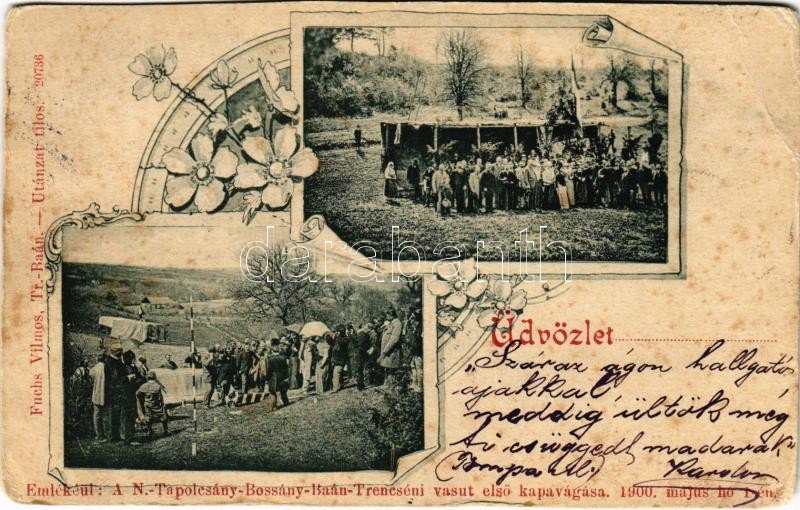 Fuchs Vilmos, Tr.-Baán. — Utánzat tilos. 20736
darabanth
Üdvözlet
„Száraz ágon hallgató
ajakkal
meddig ültök még
ti csüggedt madarak"
(Tompa M.) Karolin
Emlékéül: A N.-Tapolcsány-Bossány-Baán-Trencséni vasut első kapavágása. 1900. május hó 1-én.